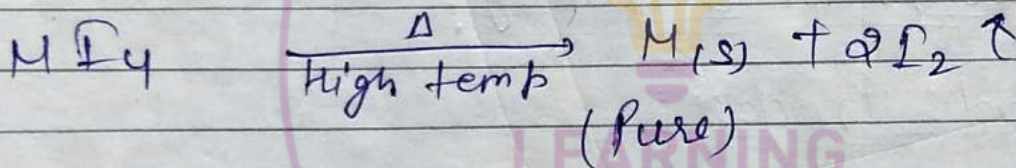 MI4 Δ High temp → M(s) + 2I2 ↑
(Pure)
LEARNING